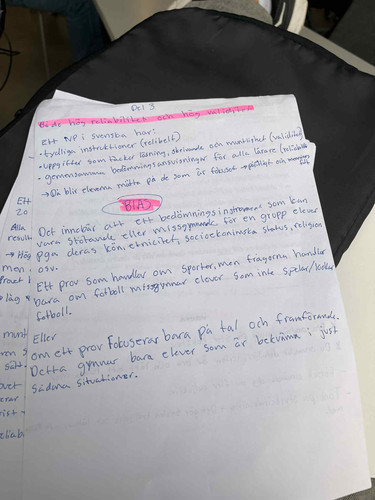 Del 3
Både hög reliabilitet och hög validitet
Ett NP i svenska har:
• tydliga instruktioner (relibelt)
• uppgifter som täcker läsning, skrivande och muntlighet (validitet)
• gemensamma bedömningsanvisningar för alla lärare (reliabilitet
→ Då blir eleverna mätta på de som är fokuset →
BIAS
Det innebär att ett bedömningsinstrument som kan
vara stötande eller missgynnande, för en grupp elever
pga deras kön, etnicitet, socioekonimska status, religion
osv.
Ett prov som handlar om sporter, men frågorna handlar
bara om fotboll missgynnar elever som inte spelar/kollar
fotboll.
Eller
om ett prov fokuserar bara på tal och framförande.
Detta gynnar bara elever som är bekväma i just
sådana situationer.
Ett
20
Alla
result
→ Hög
men i
Provet i
låg v
munt
ren s
sätt.
ovet
arar
rist
eliab